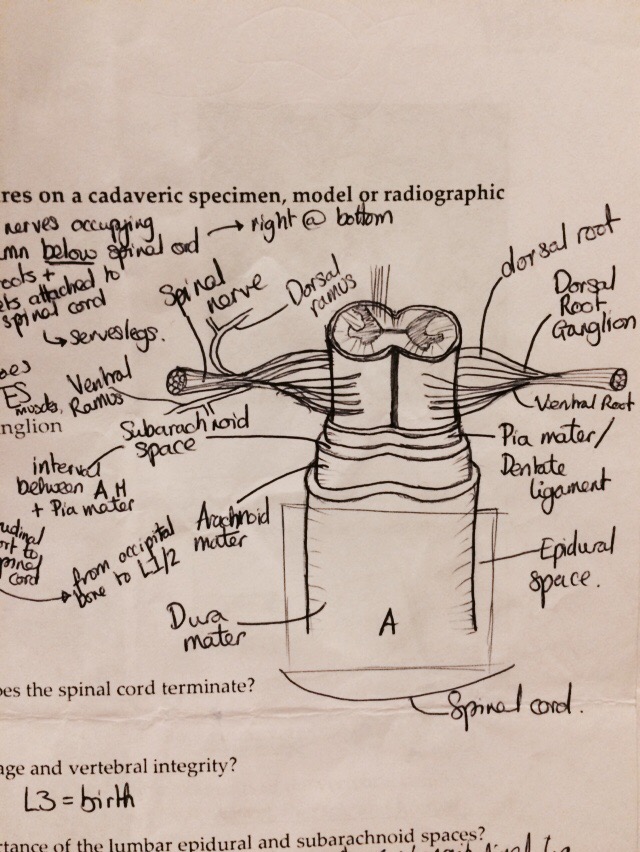 res on a cadaveric specimen, model or radiographic
nerves occupying
mn below spinal cord → right @ bottom
roots +
ets attached to
spinal cord
↳ serves legs.
Spinal
nerve
Dorsal
ramus
dorsal root
Dorsal
Root
Ganglion
oes
ES
muscles,
nglion
Ventral
Ramus
Ventral Root
Subarachnoid
space
Pia mater/
Dentate
ligament
interval
between AM
+ Pia mater
Arachnoid
mater
udinal
ort to
pinal
cord
→ from occipital
bone to L1/2
Epidural
space.
Dura
mater
A
oes the spinal cord terminate?
Spinal cord.
age and vertebral integrity?
L3 = birth
rtance of the lumbar epidural and subarachnoid spaces?